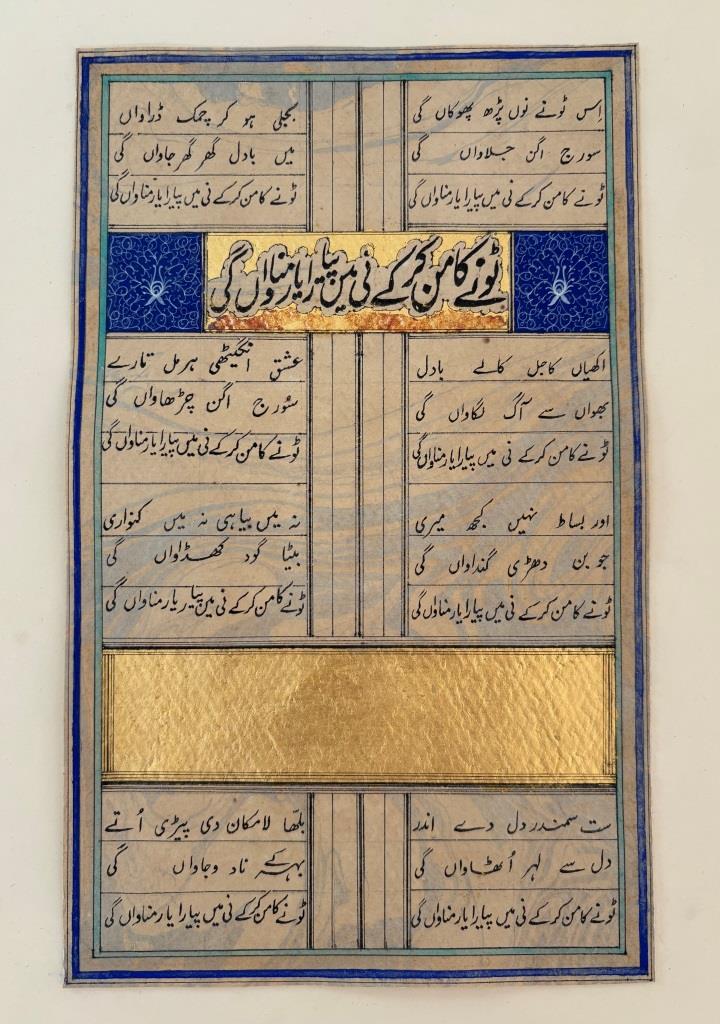 اِس ٹونے نوں پڑھ پھوکاں گی
سورج اگن جلاواں گی
ٹونے کامن کرکے نی میں پیارا یار مناواں گی
بجلی ہو کر چمک ڈراواں
میں بادل گھر گھر جاواں گی
ٹونے کامن کرکے نی میں پیارا یار مناواں گی
ٹونے کامن کرکے نی میں پیارا یار مناواں گی
اکھیاں کاجل کالے بادل
بھواں سے آگ لگاواں گی
ٹونے کامن کرکے نی میں پیارا یار مناواں گی
عشق انگیٹھی ہرمل تارے
سُورج اگن چڑھاواں گی
ٹونے کامن کرکے نی میں پیارا یار مناواں گی
اور بساط نہیں کجھ میری
جوبن دھڑی گنداواں گی
ٹونے کامن کرکے نی میں پیارا یار مناواں گی
نہ میں بیاہی نہ میں کنواری
بیٹا گود کھڈاواں گی
ٹونے کامن کرکے نی میں پیار یار مناواں گی
ست سمندر دل دے اندر
دل سے لہر اُٹھاواں گی
ٹونے کامن کرکے نی میں پیارا یار مناواں گی
بلھا لامکان دی پیڑی اُتے
بہہ کے ناد وجاواں گی
ٹونے کامن کرکے نی میں پیارا یار مناواں گی